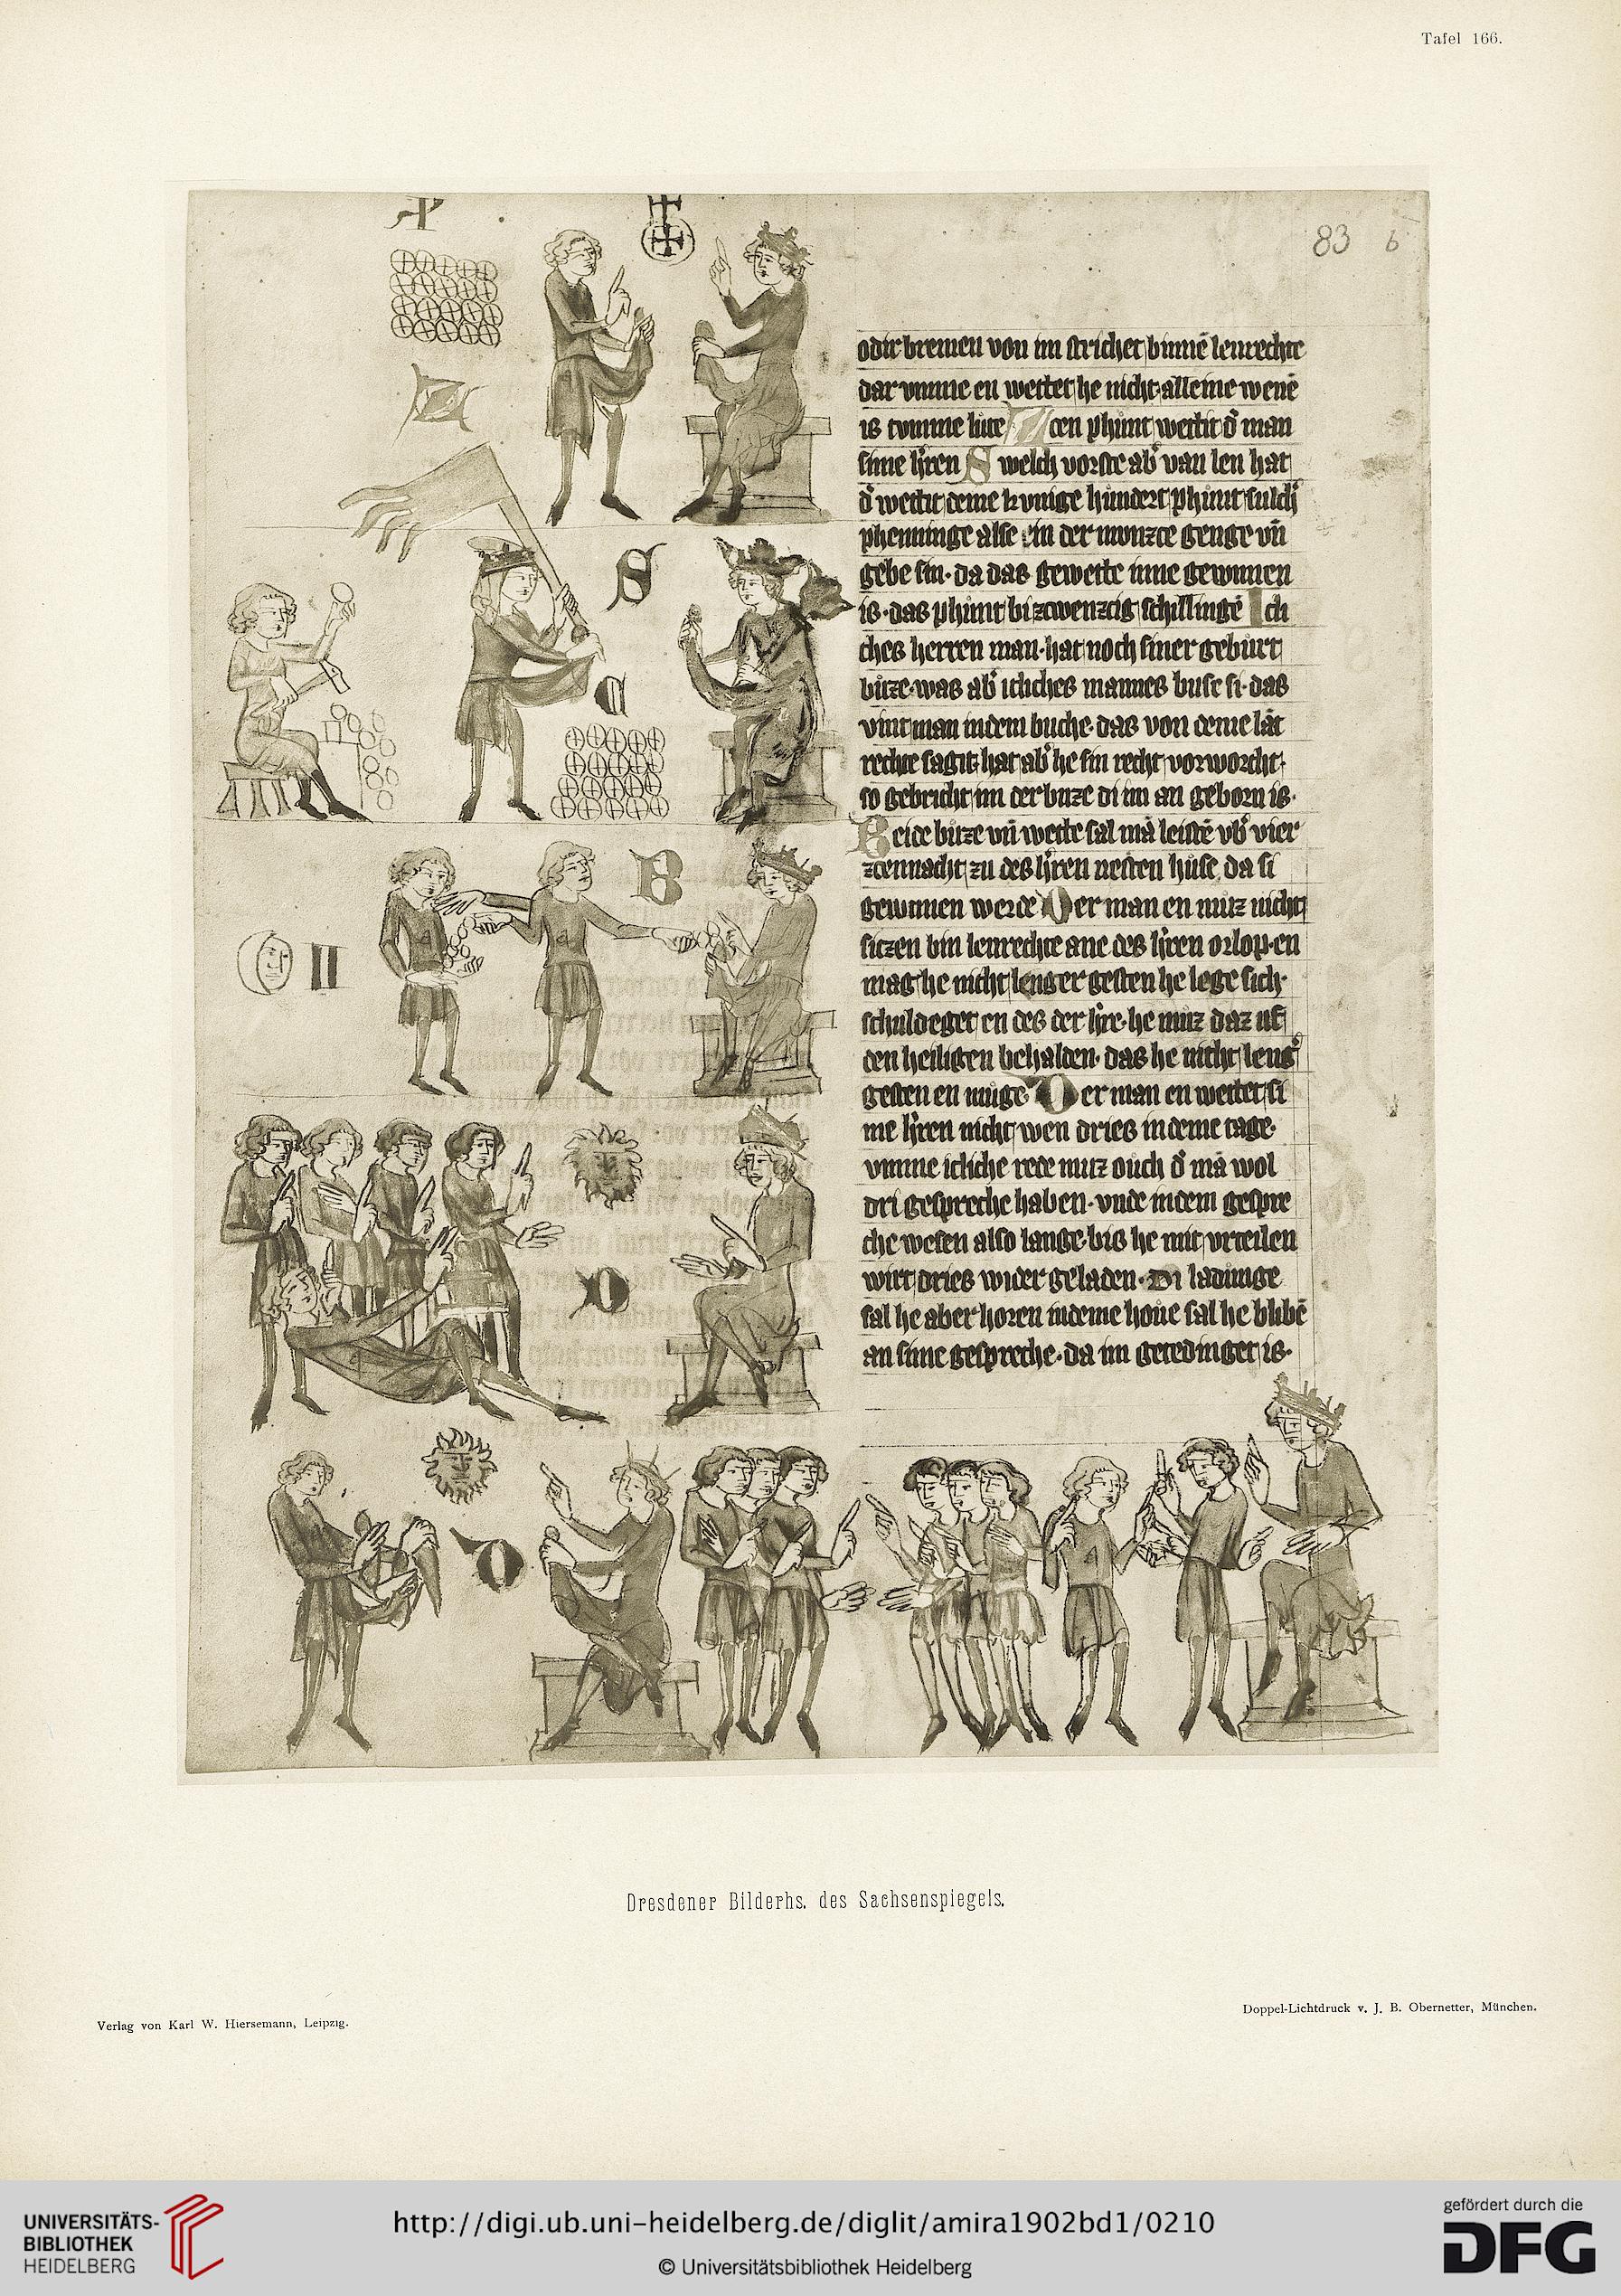 Tafel 166.
83 b
odir bremen von im strichet binnē lenrechte
dar vmme en wettet he nicht alleine wenē
is tumme lute Zcen phunt wettit d' man
sime h'ren Swelch vorste ab' van len hat
d' wettit deme kvnige hundert phunt sulch'
phenninge alse in der muntzce genge vn̄
gebe sin. da das gewette inne gewunnen
is. das phunt bi zcwenzcig schillingē Icli
ches herren man. hat noch siner geburt
buze. was ab' icliches mannes buse si. das
vint man in dem buche. das von deme lāt
rechte sagit. hat ab' he sin recht vorworcht.
so gebricht im der buze di im an geborn is.
Beide buze vn̄ wette sal mā leistē vb' vier
zcennacht zu des h'ren nesten huse da si
gewunnen werde Der man en muz nicht
sitzen bin lenrechte ane des h'ren orlop. en
mag he nicht lenger gesten he lege sich.
schuldeget en des der h're. he muz daz uf
den heiligen behalden. das he nicht leng'
gesten en muge. Der man en wettet si
me h'ren nicht wen dries in deme tage.
vmme icliche rede muz ouch d' mā wol
dri gespreche haben. vnde in dem gespre
che wesen also lange. bis he mit vrteilen
wirt dries wider geladen. Di ladunge
sal he aber horen in deme houe sal he blibē
an sime gespreche. da im geredinget is.
A
Z
S
C
B
II
D
D
Dresdener Bilderhs. des Sachsenspiegels.
Verlag von Karl W. Hiersemann, Leipzig.
Doppel-Lichtdruck v. J. B. Obernetter, München.
UNIVERSITÄTS-
BIBLIOTHEK
HEIDELBERG
http://digi.ub.uni-heidelberg.de/diglit/amira1902bd1/0210
© Universitätsbibliothek Heidelberg
gefördert durch die
DFG